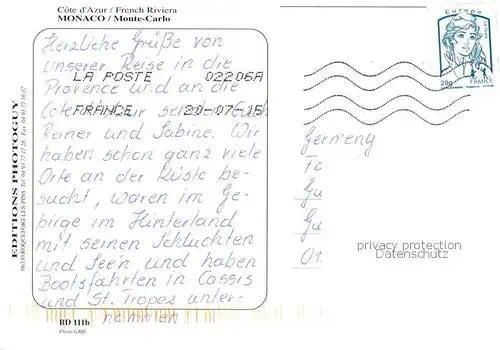 Côte d'Azur / French Riviera
MONACO / Monte-Carlo
Herzliche Grüße von
unserer Reise in die
Provence und an die
Côte d'Azur senden Euch
Rainer und Sabine. Wir
haben schon ganz viele
Orte an der Küste be-
sucht, waren im Ge-
birge im Hinterland
mit seinen Schluchten
und Seen und haben
Bootsfahrten in Cassis
und St. Tropez unter-
nehmen
LA POSTE 02206A
FRANCE 20-07-15
Europe
20g
Germeny
privacy protection
Datenschutz
EDITIONS PHOTOGUY
BD 111b
Photo GMB